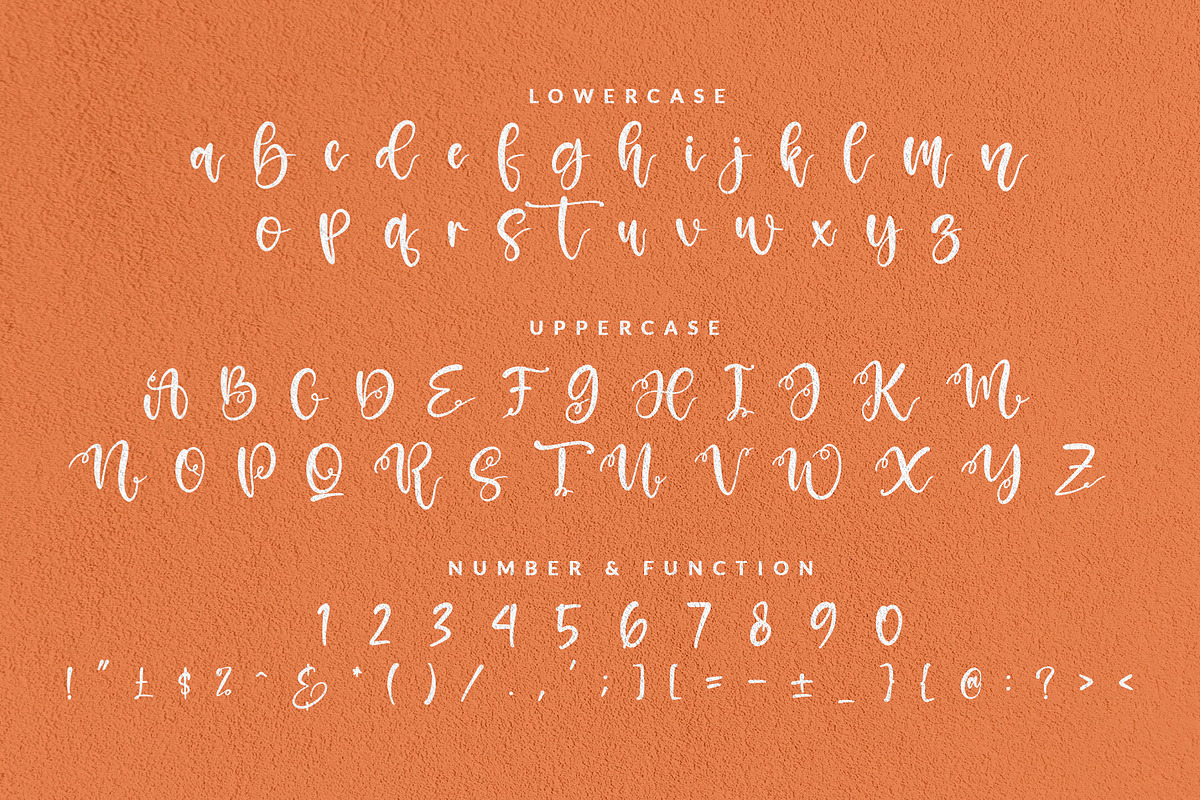 LOWERCASE
a b c d e f g h i j k l m n
o p q r s t u v w x y z
UPPERCASE
A B C D E F G H I J K M
N O P Q R S T U V W X Y Z
NUMBER & FUNCTION
1 2 3 4 5 6 7 8 9 0
! " £ $ % ^ & * ( ) / . , ' ; ] [ = - ± _ } { @ : ? > <